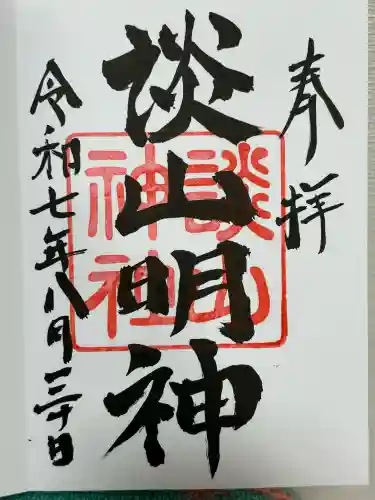 奉拝
談山明神
談山神社
令和七年八月三十日